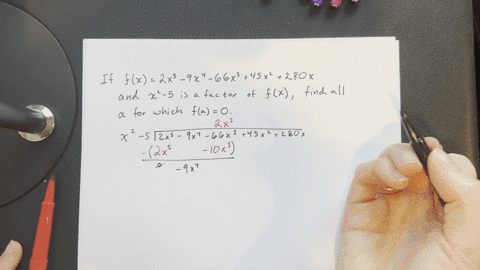 If f(x) = 2x⁵ - 9x⁴ - 66x³ + 45x² + 280x
and x² - 5 is a factor of f(x), find all
a for which f(a) = 0.
2x³
x² - 5 2x⁵ - 9x⁴ - 66x³ + 45x² + 280x
-(2x⁵ - 10x³)
0 - 9x⁴